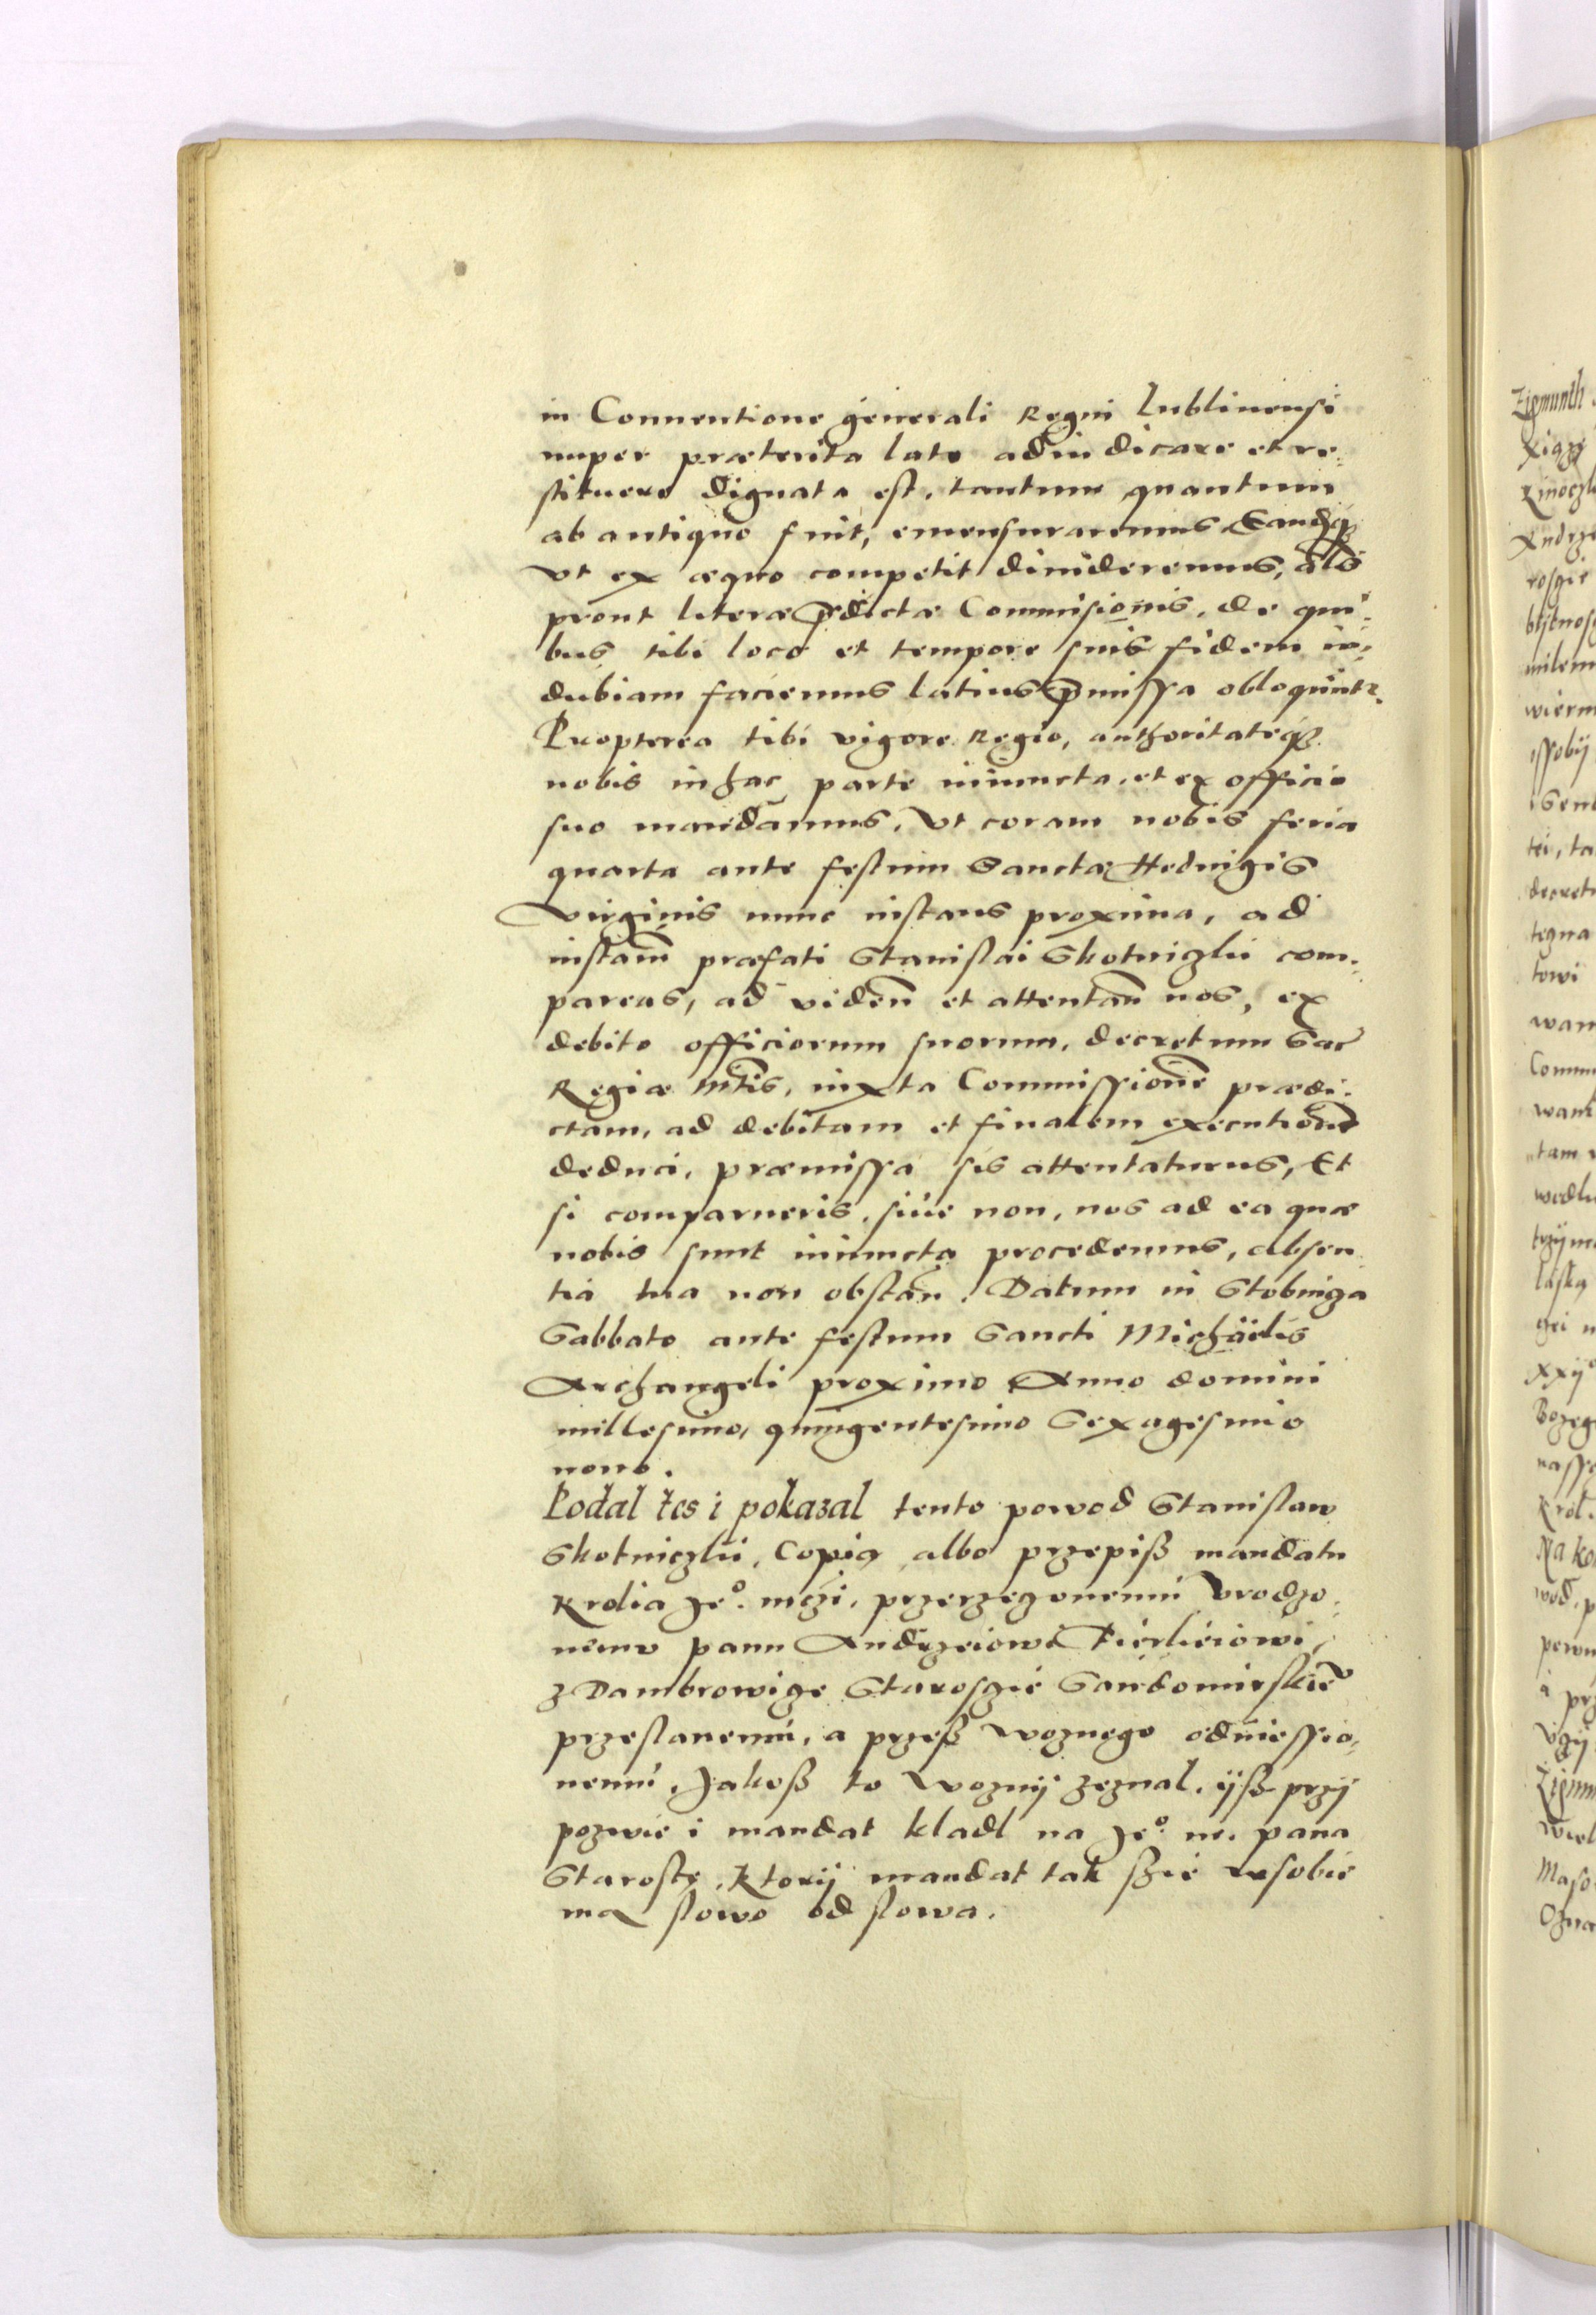 in Conuentione generali Regni Lublinensi
nuper præterita lato adiudicare et re:
stituere dignata est, tantum quantum
ab antiquo fuit, emensuraremus Eandq3
vt ex æquo competit diuideremus, als
prout literæ p̄dictæ Commisionis, de qui:
bus tibi loco et tempore suis fidem in:
dubiam faciemus latius p̄missa obloquūtr.
Propterea tibi vigore Regio, authoritateq3
nobis in hac parte iniuncta, et ex officio
suo mandamus, Vt coram nobis feria
quarta ante festum Sanctæ Heduigis
Virginis nunc instans proxima, ad
instam̄ præfati Stanislai Skotniczki com:
pareas, ad viden̄ et attentan̄ nos, ex
debito officiorum suorum, decretum Sac
Regiæ Mtis, iuxta Commissionē prædi:
ctam, ad debitam et finalem executionē
deduci, præmissa sis attentaturus, Et
si comparueris, siue non, nos ad ea quæ
nobis sunt iniuncta procedemus, absen
tia tua non obstan̄. Datum in Stobnicza
Sabbato ante festum Sancti Michaëlis
Archangeli proximo Anno domini
millesimo, quingentesimo Sexagesimo
nono.
Podal tes i pokazal tento powod Stanislaw
Skotniczki, Copią albo przepiß mandatu
Krolia Jeº. mczi, przerzeczonemu Vrodzo:
nemu panu Andrzeiowi Firlieiowi,
z Dambrowicze Starosczie Sandomirskiē
przeslanemu, a przeß woznego odniessio:
nemu, Jakoß to Woznij zeznal, ijß przij
pozwie i mandat kladl na Jeº. m. pana
Starostę, Ktorij mandat tak szie wsobie
ma slowo od slowa.